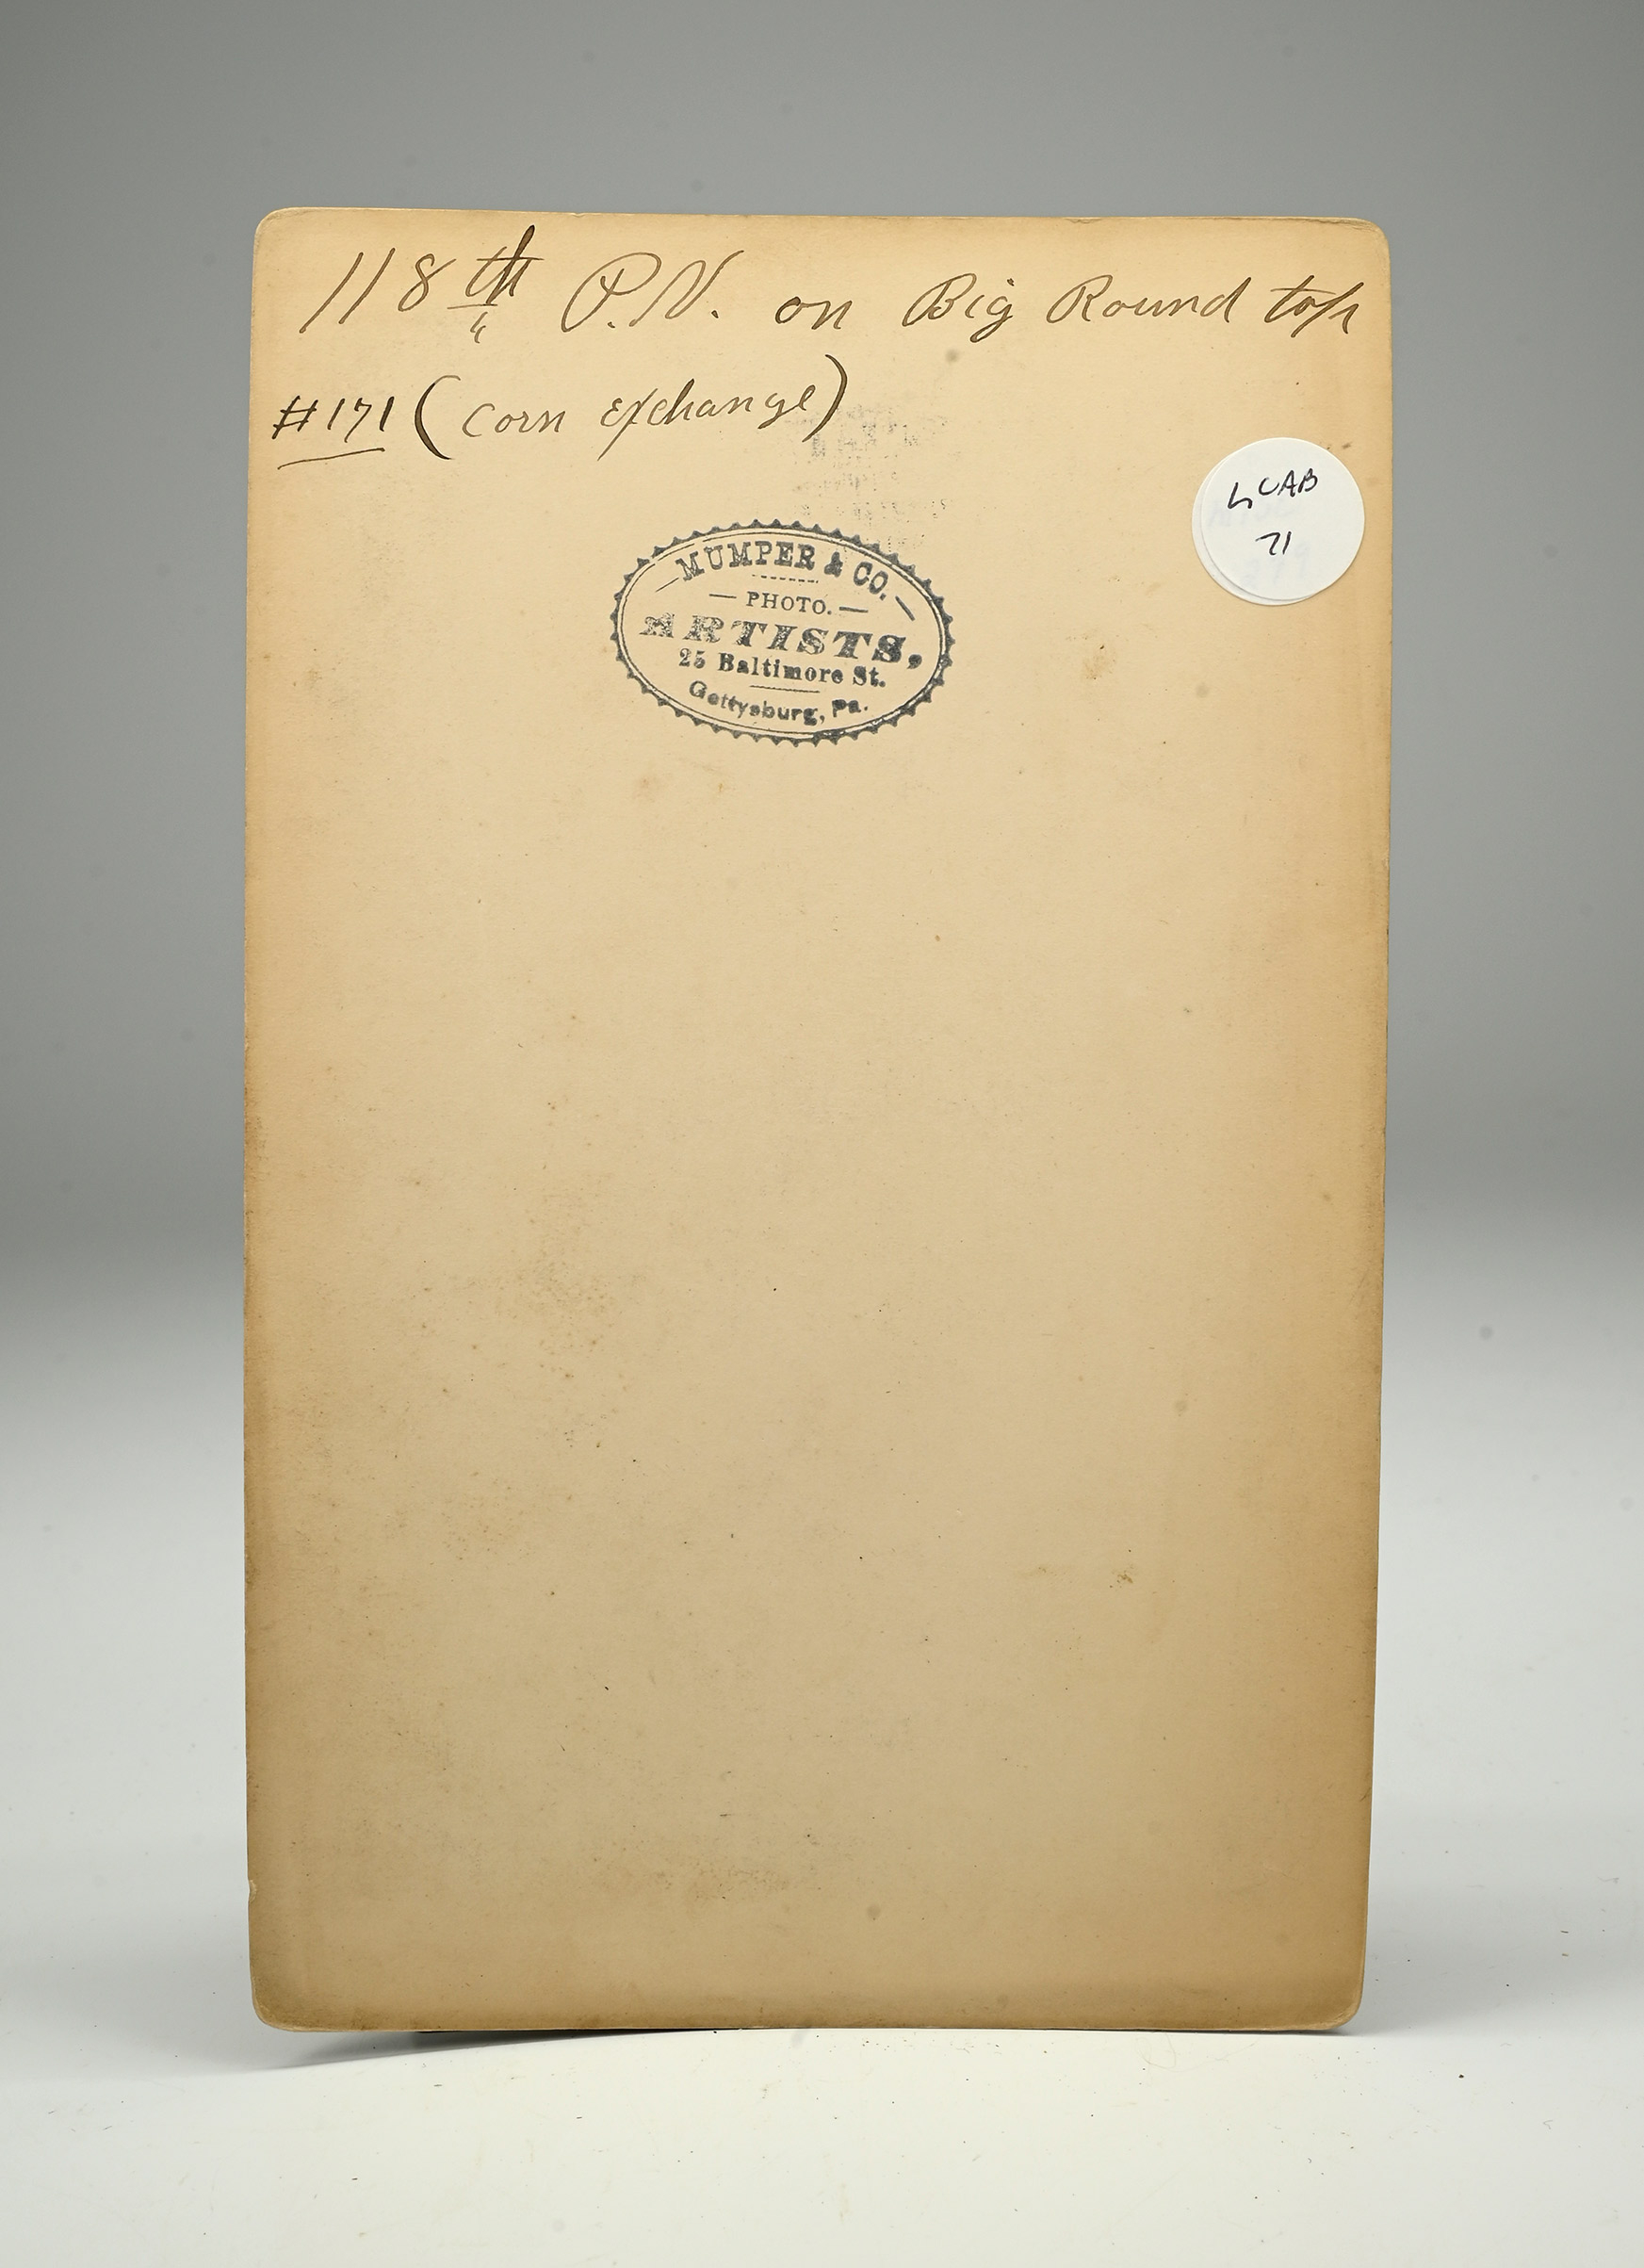 118th P.V. on Big Round top
#171 (Corn exchange)
MUMPER & CO.
PHOTO.
ARTISTS,
25 Baltimore St.
Gettysburg, Pa.
71